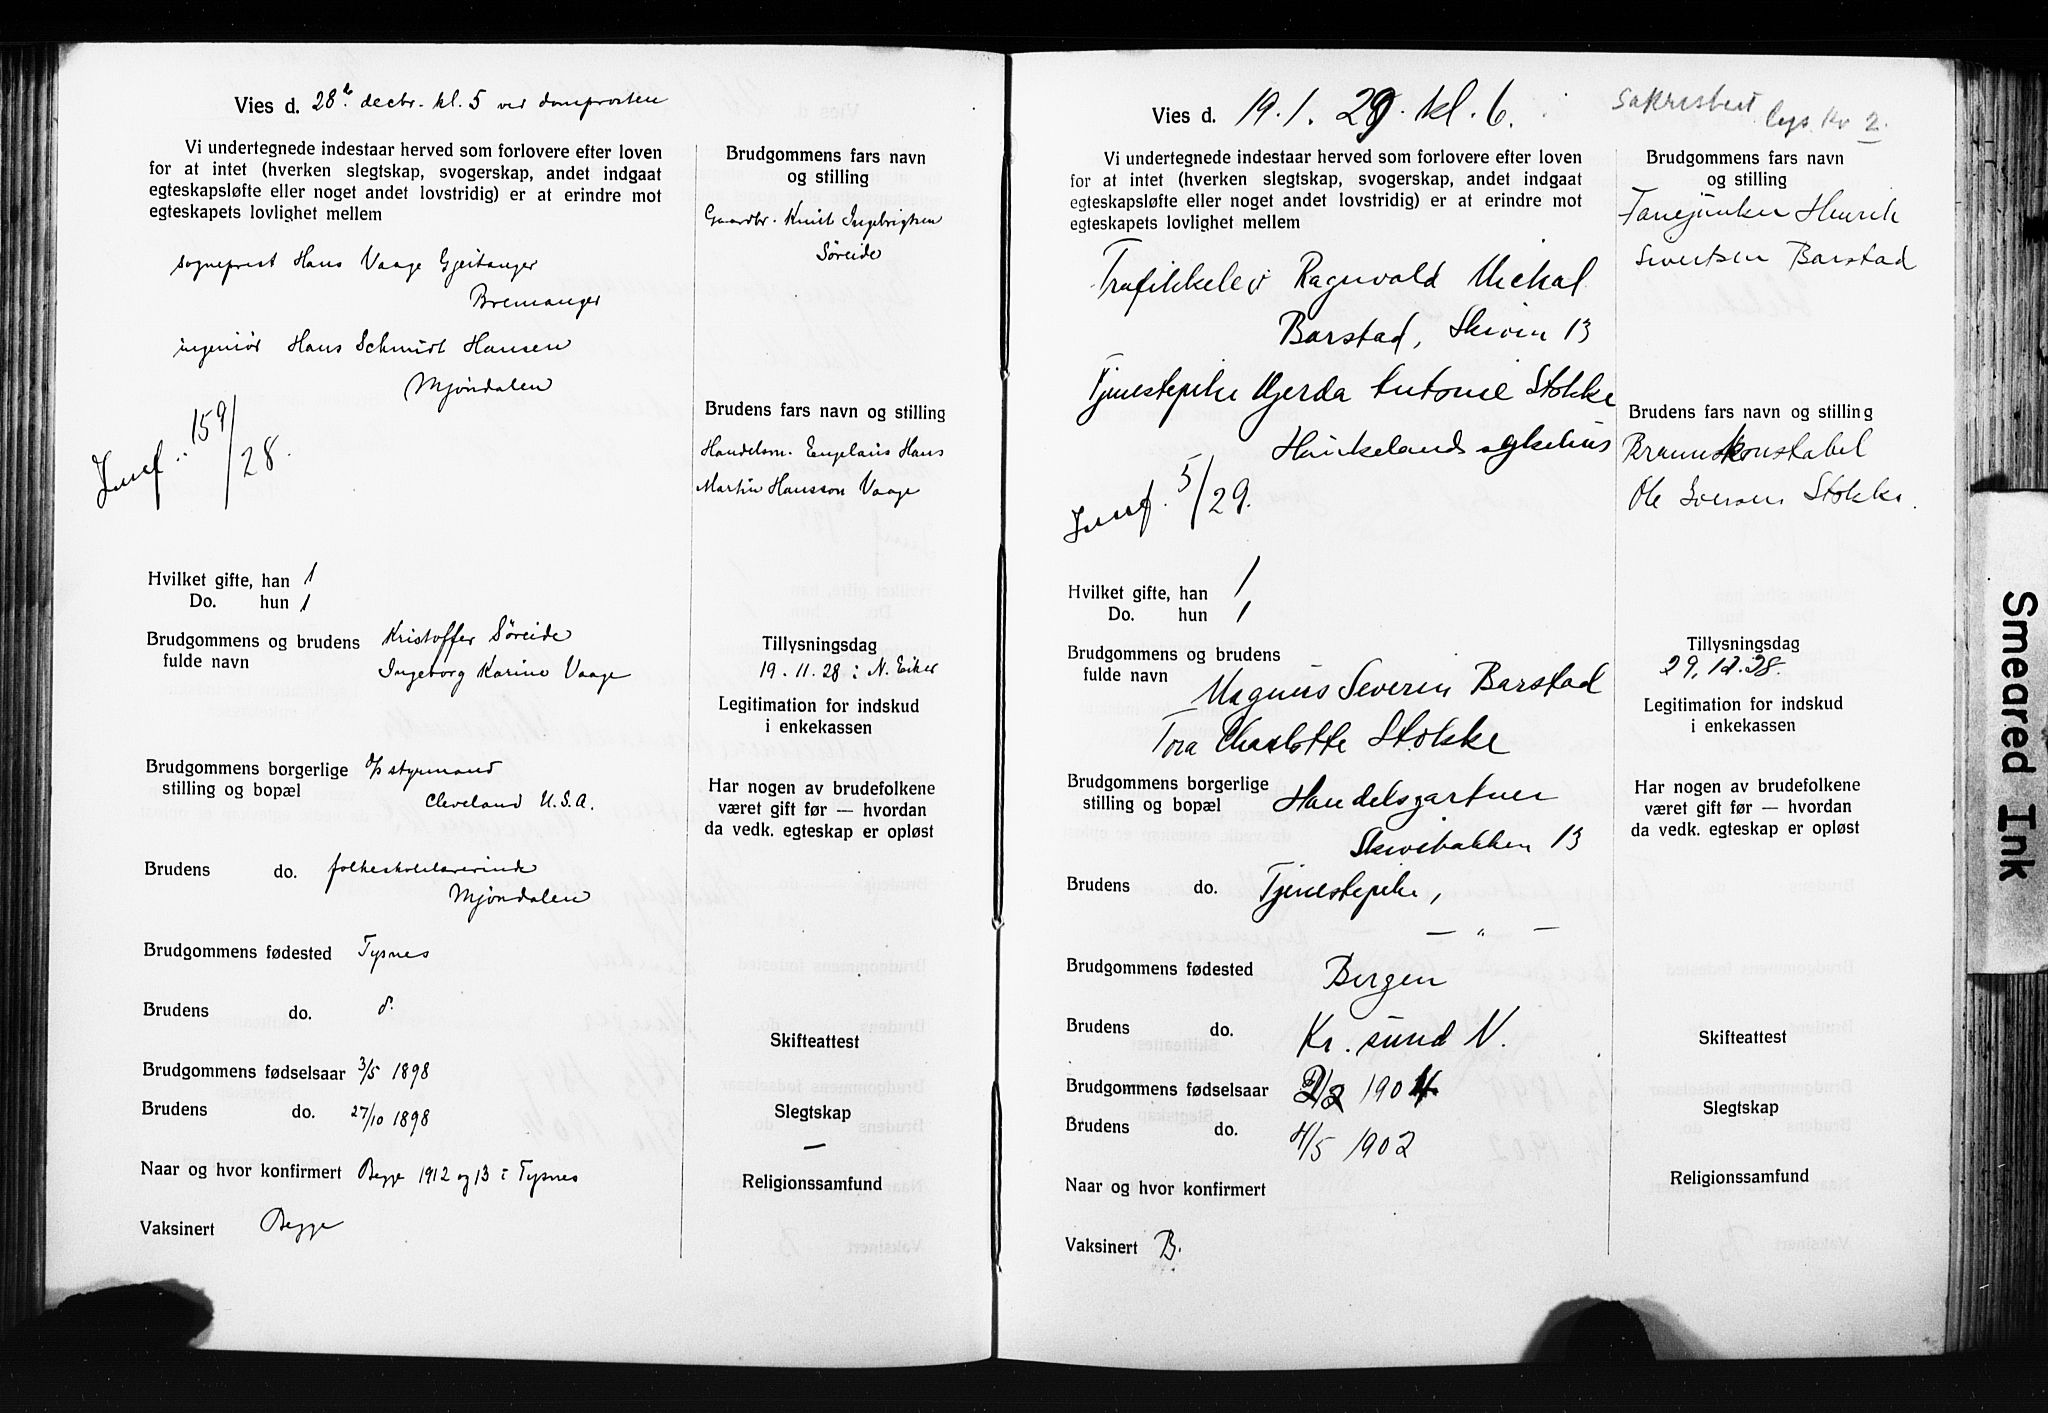 Vies d. 28de decbr. kl. 5 ved domprosten
Vi undertegnede indestaar herved som forlovere efter loven
for at intet (hverken slegtskap, svogerskap, andet indgaat
egteskapsløfte eller noget andet lovstridig) er at erindre mot
egteskapets lovlighet mellem
sogneprest Hans Vaage Gjeitanger
Bremanger
ingeniør Hans Schmidt Hansen
Mjöndalen
Jmf.: 159/28.
Brudgommens fars navn
og stilling
Gaardbr. Knut Ingebrigtsen
Søreide
Brudens fars navn og stilling
Handelsm. Engelaus Hans
Martin Hansson Vaage
Hvilket gifte, han 1
Do. hun 1
Brudgommens og brudens
fulde navn
Kristoffer Søreide
Ingeborg Karine Vaage
Tillysningsdag
19.11.28 i N. Eiker
Legitimation for indskud
i enkekassen
Brudgommens borgerlige
stilling og bopæl
styrmand
Cleveland U.S.A.
Har nogen av brudefolkene
været gift før — hvordan
da vedk. egteskap er opløst
Brudens do. folkeskolelærerinde
Mjöndalen
Brudgommens fødested Tysnes
Brudens do. d.
Skifteattest
Brudgommens fødselsaar 3/5 1898
Brudens do. 27/10 1898
Slegtskap
—
Naar og hvor konfirmert Begge 1912 og 13 i Tysnes
Religionssamfund
Vaksinert Begge
Vies d. 19.1.29. kl. 6.
Sakristiet
lys. Kr 2.
Vi undertegnede indestaar herved som forlovere efter loven
for at intet (hverken slegtskap, svogerskap, andet indgaat
egteskapsløfte eller noget andet lovstridig) er at erindre mot
egteskapets lovlighet mellem
Trafikkelev Ragnvald Mickal
Barstad, Skiven 13
Tjenestepike Gjerda Antonie Stokke
Haukelands sykehus
Jmf. 5/29.
Brudgommens fars navn
og stilling
Henrik
Sivertsen Barstad
Brudens fars navn og stilling
Brannkonstabel
Ole Iversen Stokke.
Hvilket gifte, han 1
Do. hun 1
Brudgommens og brudens
fulde navn
Magnus Severin Barstad
Tora Charlotte Stokke
Tillysningsdag
29.12.28.
Legitimation for indskud
i enkekassen
Brudgommens borgerlige
stilling og bopæl
Handelsgartner
Skivebakken 13
Har nogen av brudefolkene
været gift før — hvordan
da vedk. egteskap er opløst
Brudens do. Tjenestepike,
— „ —
Brudgommens fødested Bergen
Brudens do. Kr. sund N.
Skifteattest
Brudgommens fødselsaar 2/2 1904
Brudens do. 4/5 1902
Slegtskap
Naar og hvor konfirmert
Religionssamfund
Vaksinert B.
Smeared Ink